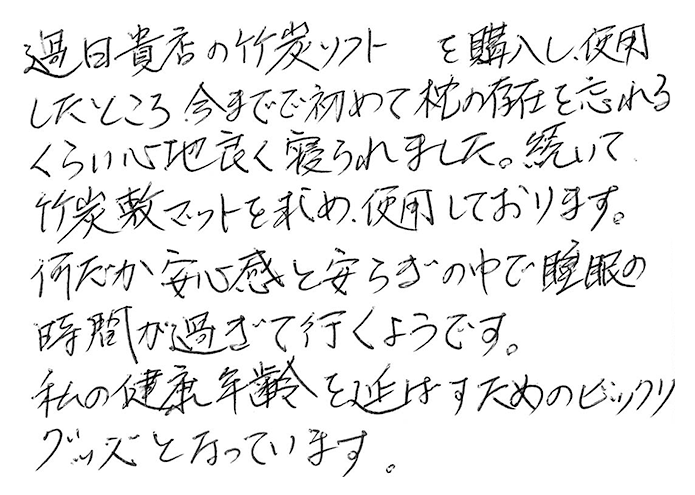 過日貴店の竹炭ソフト を購入し、使用
したところ 今までで初めて枕の存在を忘れる
くらい心地良く寝られました。続いて
竹炭敷マットを求め、使用しております。
何だか安心感と安らぎの中で睡眠の
時間が過ぎて行くようです。
私の健康年齢を延ばすためのビックリ
グッズとなっています。